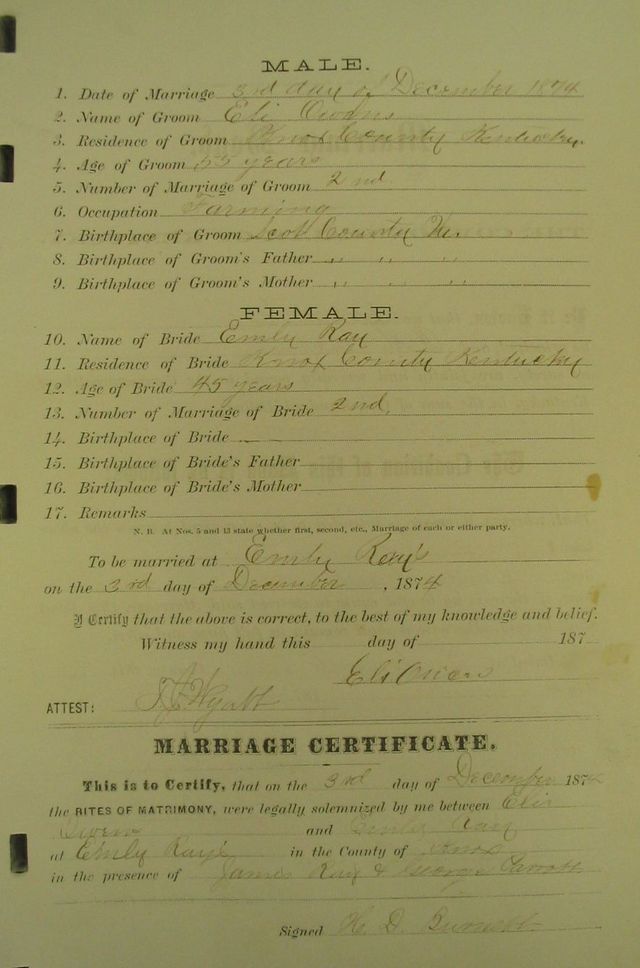 MALE.
1. Date of Marriage 3rd day of December 1874
2. Name of Groom Eli Owens
3. Residence of Groom Knox County Kentucky
4. Age of Groom 55 years
5. Number of Marriage of Groom 2nd
6. Occupation Farming
7. Birthplace of Groom Scott County
8. Birthplace of Groom's Father " " "
9. Birthplace of Groom's Mother " " "
FEMALE.
10. Name of Bride Emly Ray
11. Residence of Bride Knox County Kentucky
12. Age of Bride 45 years
13. Number of Marriage of Bride 2nd
14. Birthplace of Bride
15. Birthplace of Bride's Father
16. Birthplace of Bride's Mother
17. Remarks
N. B. At Nos. 5 and 13 state whether first, second, etc., Marriage of each or either party.
To be married at Emly Ray's
on the 3rd day of December, 1874
I Certify that the above is correct, to the best of my knowledge and belief.
Witness my hand this day of 187
Eli Owens
ATTEST: Wyatt
MARRIAGE CERTIFICATE.
This is to Certify, that on the 3rd day of December 1874
the RITES OF MATRIMONY, were legally solemnized by me between Eli
Owens and Emly Ray
at Emly Ray's in the County of Knox
in the presence of James Ray & George
Signed H. D. Burnett